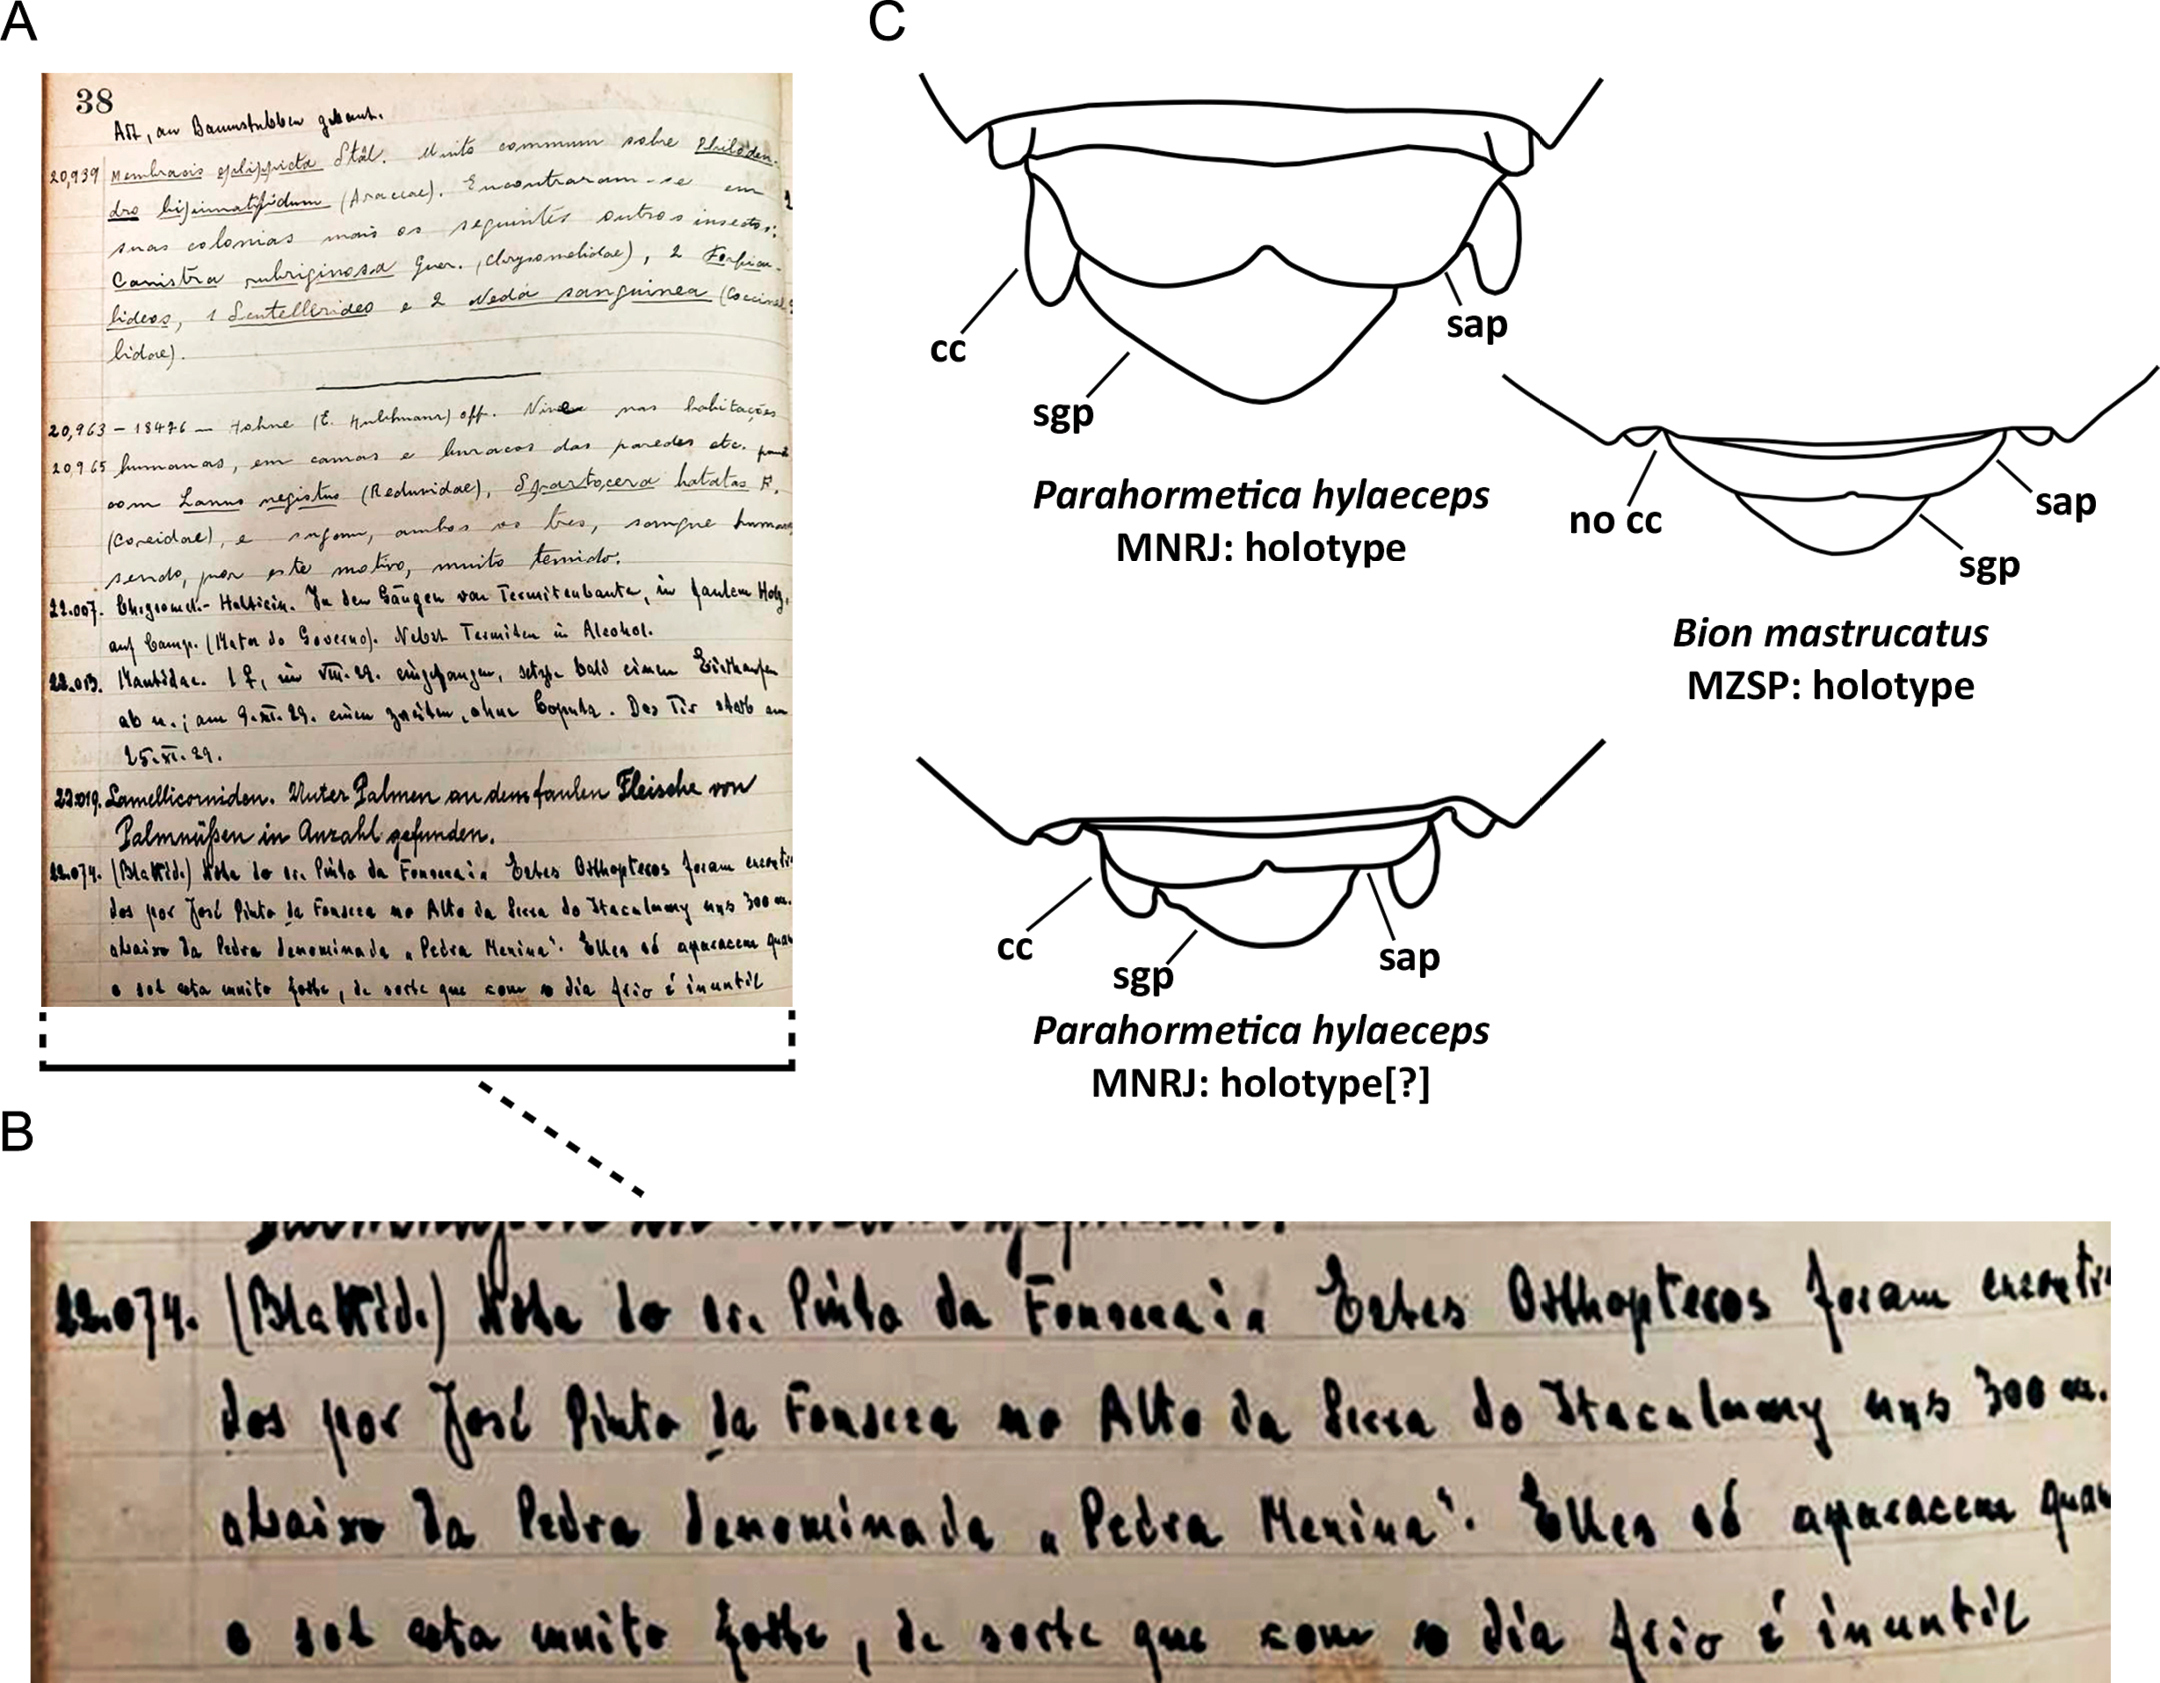 A
38
Art, an Baumstubben gebaut.
20,939 Membracis Stål. Muito commum sobre Philoden-
dro bipinnatifidum (Araceae). Encontraram-se em
suas colonias mais os seguintes outros insectos:
Canistra rubriginosa Guer. (Chrysomelidae), 2 Forficu-
lideos, 1 Scutellerideo e 2 Neda sanguinea (Coccinel
lidae).
20,963 – 18476 — Hohne (E. ) off. Vive nas habitações
20,965 humanas, em camas e buracos das paredes etc.
com Lamus megistus (Reduvidae), Spartocera batatas F.
(Coreidae), e sugam, ambos os tres, sangue
sendo, por este motivo, muito temido.
22.007. Chrysomel.- Halticin. In den Gängen von Termitenbaute, in faulem Holz,
auf Camp. (Mata do Governo). Nebst Termiten in Alcohol.
22.013. Mantidae. 1 ♀, im VIII.29. eingefangen, setzte bald einen
ab u.; am 9.XI.29. einen zweiten, ohne Copula. Das Tir starb am
25.XI.29.
22.019. Lamellicorniden. Unter Palmen an dem faulen Fleische von
Palmnüßen in Anzahl gefunden.
22.074. (Blattid.) Nota do sr. Pinto da Fonseca: Estes Orthopteros foram encontr
dos por José Pinto da Fonseca no Alto da Serra do Itacalumy uns 300 m.
abaixo da Pedra denominada „Pedra Menina". Elles só aparacem quan
o sol esta muito forte, de sorte que com o dia frio é inuntil
B
22.074. (Blattid.) Nota do sr. Pinto da Fonseca: Estes Orthopteros foram encontr
dos por José Pinto da Fonseca no Alto da Serra do Itacalumy uns 300 m.
abaixo da Pedra denominada „Pedra Menina". Elles só aparacem quan
o sol esta muito forte, de sorte que com o dia frio é inuntil
C
cc
sgp
sap
Parahormetica hylaeceps
MNRJ: holotype
no cc
sap
sgp
Bion mastrucatus
MZSP: holotype
cc
sgp
sap
Parahormetica hylaeceps
MNRJ: holotype[?]